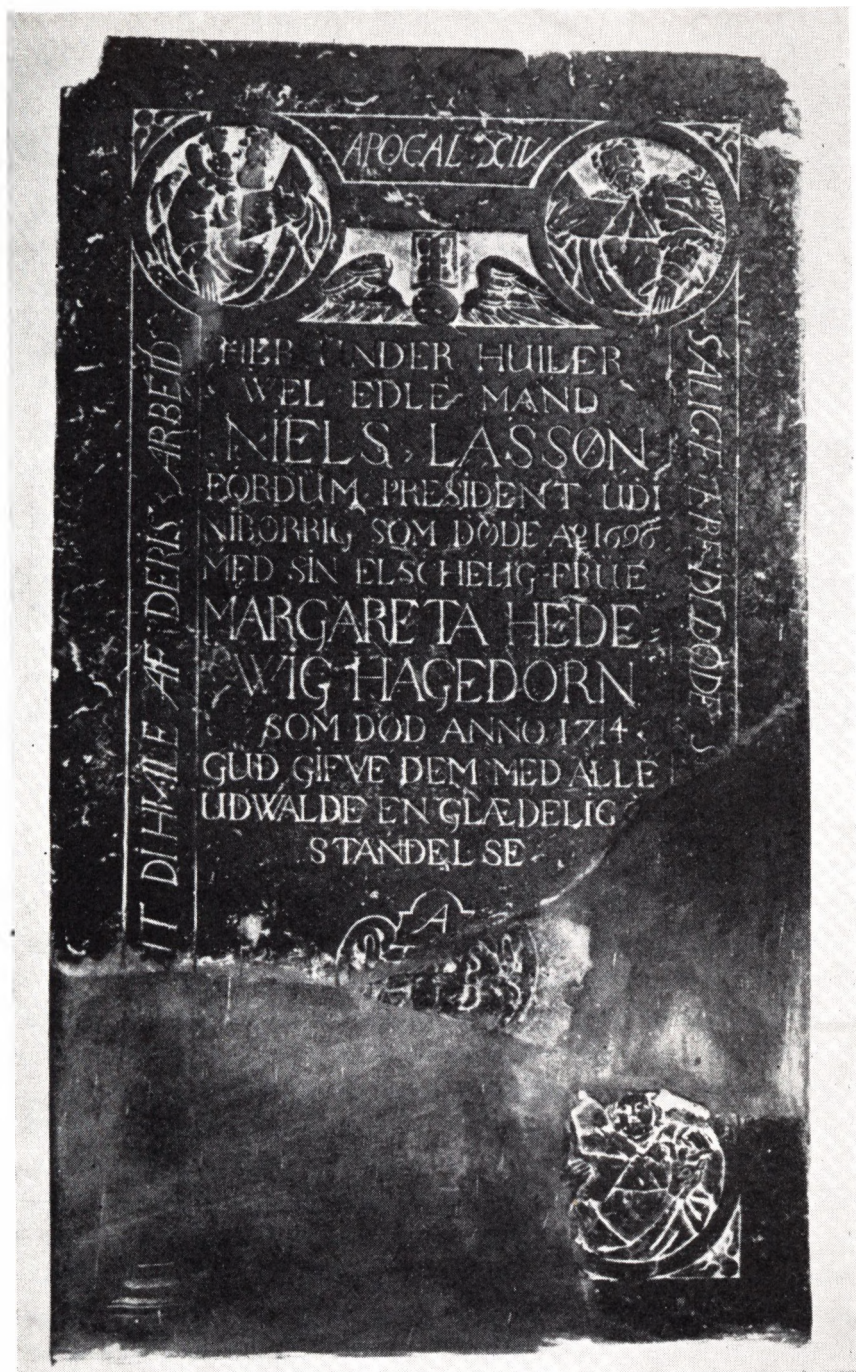 APOCAL XIV
HER UNDER HUILER
WEL EDLE MAND
NIELS LASSØN
FORDUM PRESIDENT UDI
NIBORRIG SOM DØDE Aº 1696
MED SIN ELSCHELIG FRUE
MARGARETA HEDE
WIG HAGEDORN
SOM DØD ANNO 1714
GUD GIFVE DEM MED ALLE
UDWALDE EN GLÆDELIG
STANDELSE
A
SALIGE ERE DI DØDE S
IT DI HVILE AF DERIS ARBEID